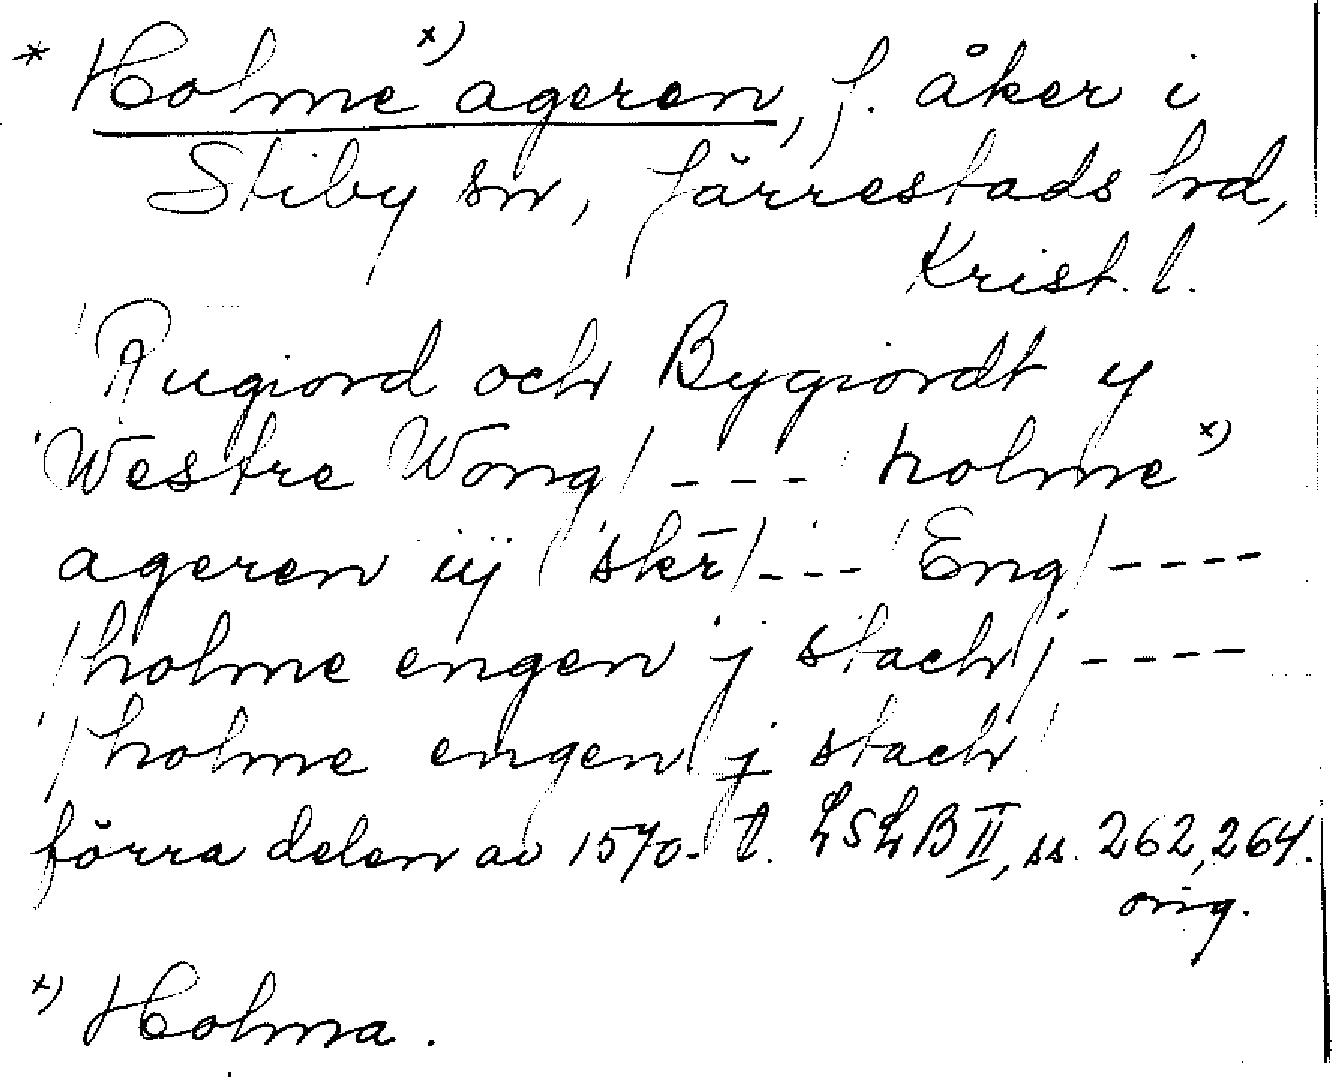 * Holme x) ageren, f. åker i
Stiby sn, Järrestads hrd,
Krist. l.
Rugiord och Bygiordt y
Westre Wong/ --- holme x)
ageren iij skr̄/ --- Eng/ ----
/holme engen j stach/ ----
/holme engen j stach
förra delen av 1570-t. LSLB II, ss. 262, 264.
orig.
x) Holma.